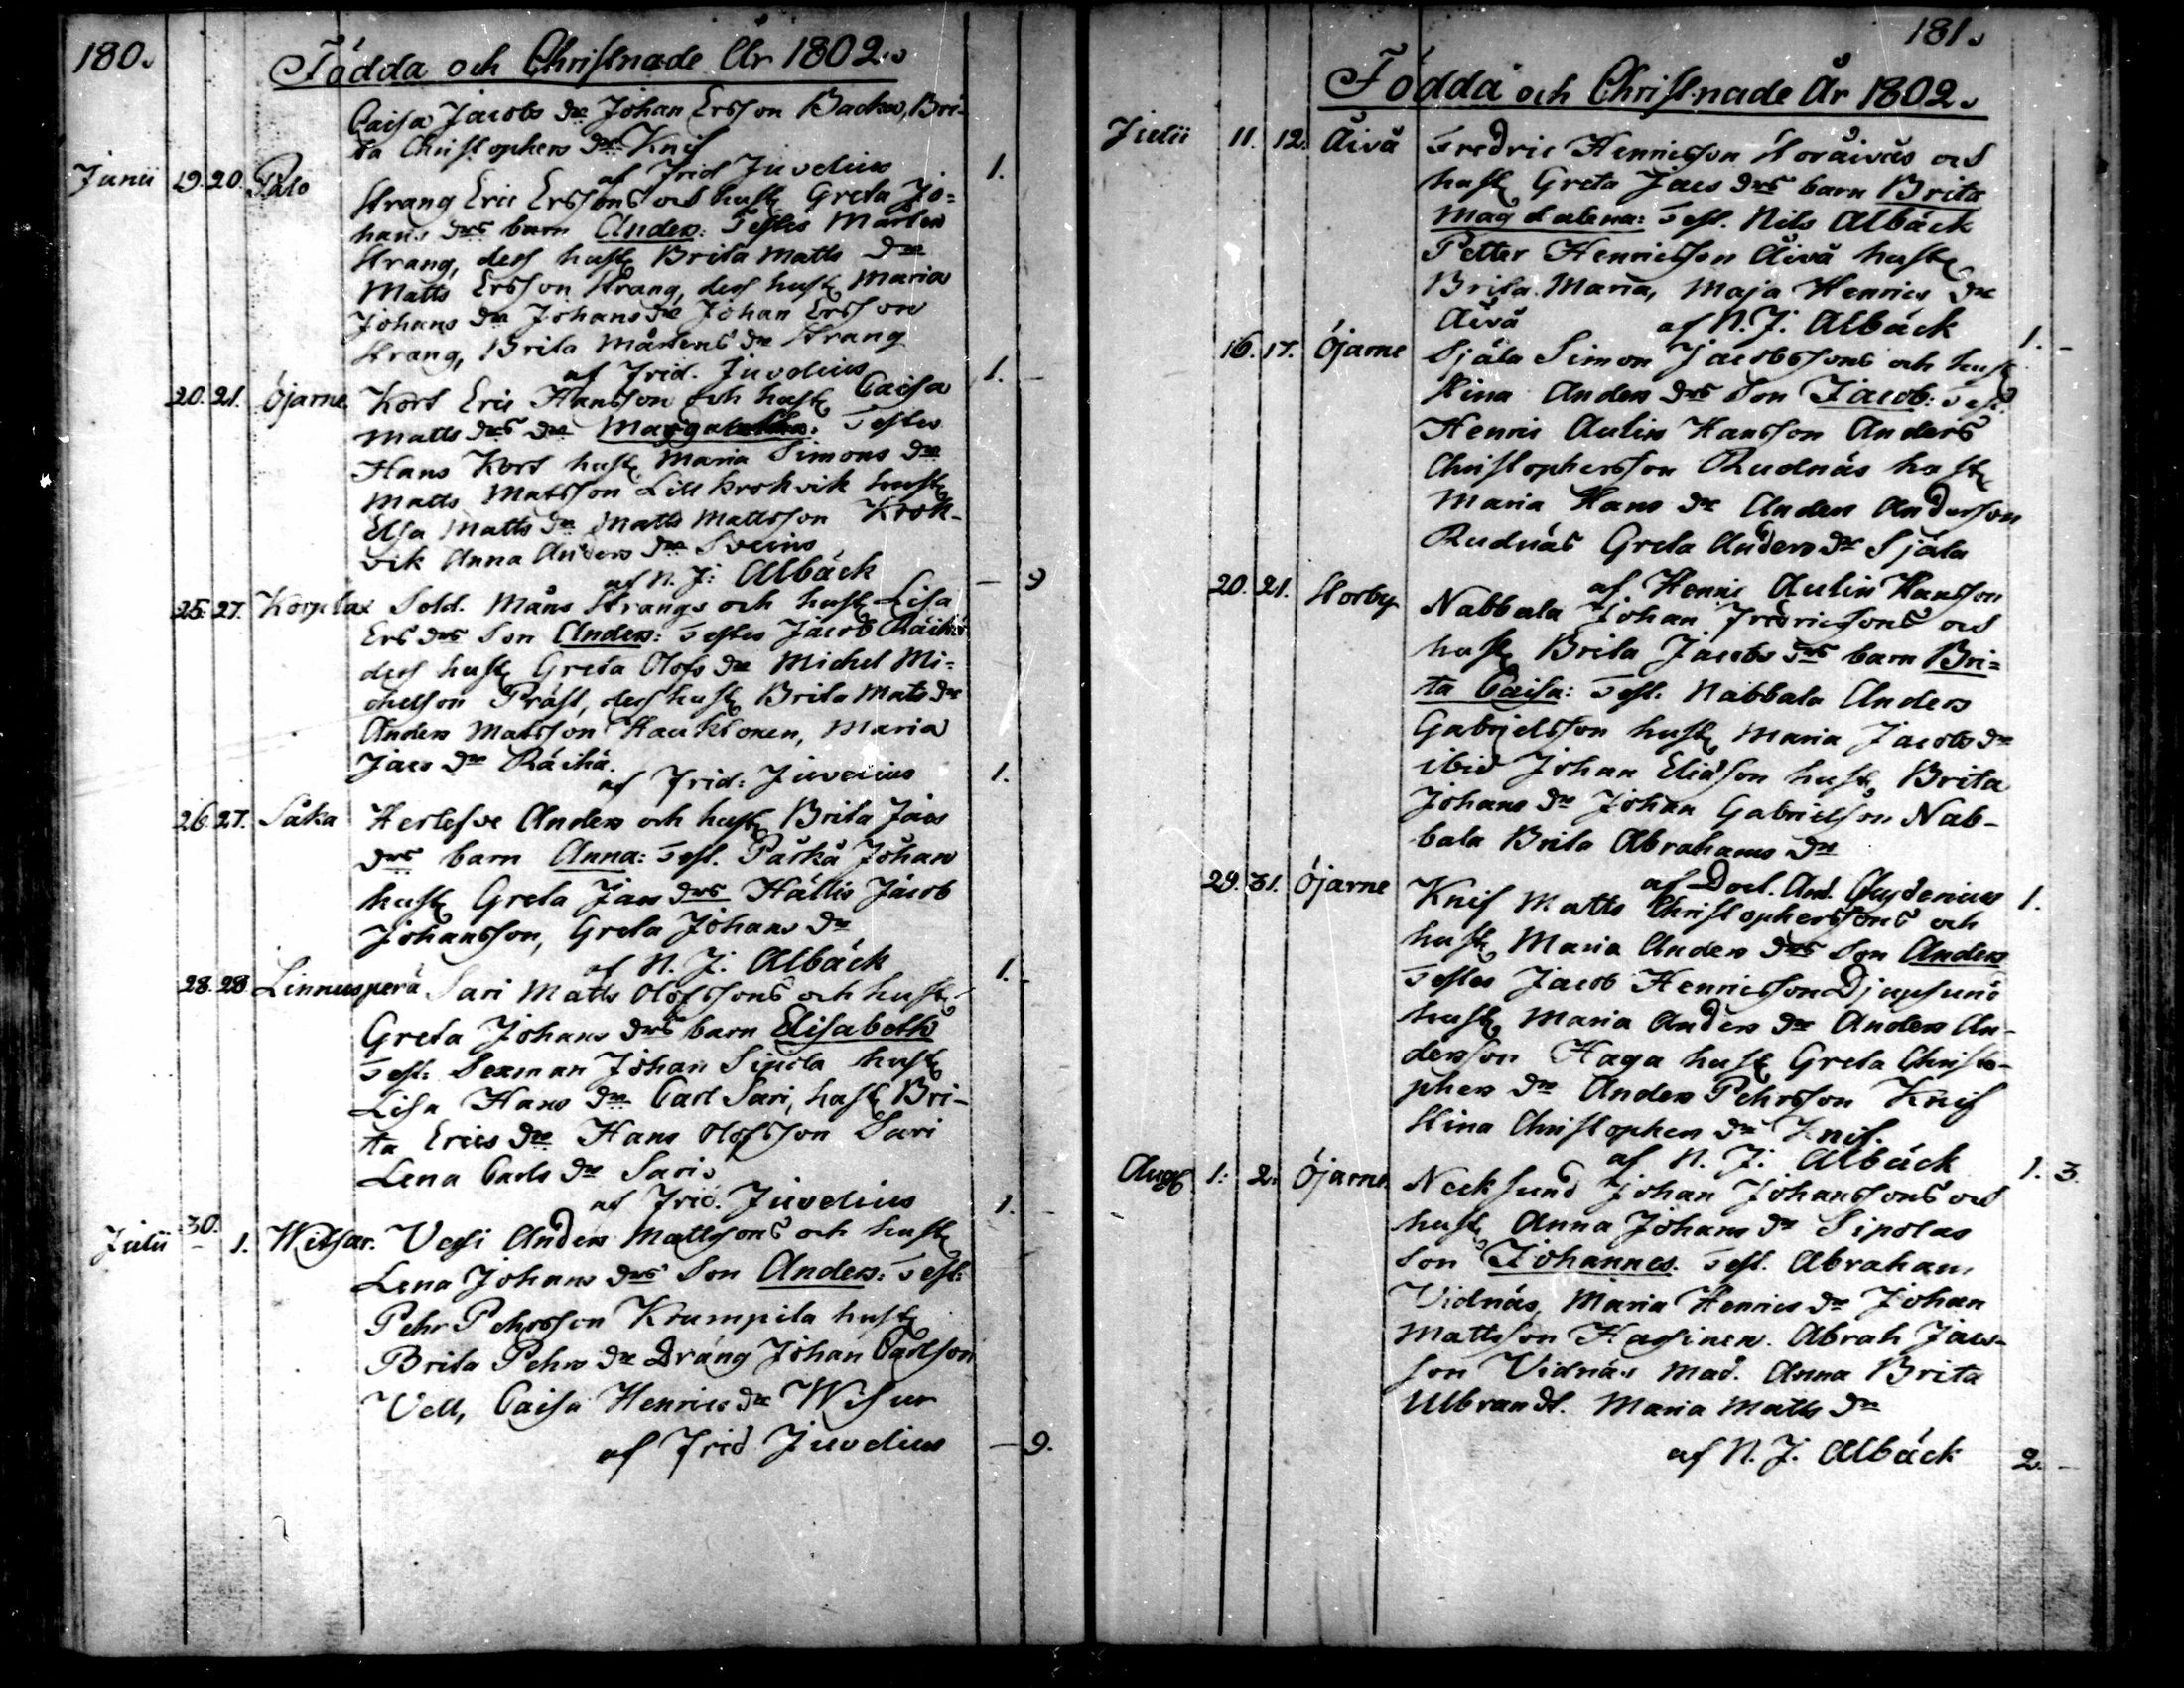 180.
Födda och Christnade År 1802.
Caisa Jacobs dr Johan Ersson Backa, Bri-
ta Christophers dr Knif
af Frid Juvelius 1.
Junii 19. 20. Palo Strang Eric Erssons och hust Greta Jo=
hans drs barn Anders: Testes Mårten
Strang, dess hust Brita Matts dr
Matts Ersson Strang, dess hust Maria
Johans dr Johans dr Johan Ersson
Strang, Brita Mårtens dr Strang
af Frid. Juvelius 1. -
20. 21. Öjarne Kort Eric Hansson och hust Caisa
Matts drs dr Testes
Hans Kort hust Maria Simons dr
Matts Matsson Lillkrokvik hust
Elsa Matts dr Matts Mattsson Krok-
vik Anna Anders dr Sveins
af N. J: Albäck - 9
25. 27. Korplax Sold. Måns Strangs och hust Lisa
Ers drs Son Anders: Testes Jacob Räihä
dess hust Greta Olofs dr Michel Mi=
chelson Präst, dess hust Brita Mats dr
Anders Matsson Hauktonen, Maria
Jacs dr Räihä.
af Frid: Juvelius 1.
26. 27. Saka Herlefve Anders och hust Brita Jacs
drs barn Anna: Test. Påskä Johan
hust Greta Jacs drs Hällis Jacob
Johansson, Greta Johans dr
af N. J. Albäck 1.
28. 28. Linnusperä Sari Matts Olofssons och hust
Greta Johans drs barn Elisabeth
Test: Sexman Johan Sipola hust
Lisa Hans dr Carl Sari, hust Bri-
ta Erics dr Hans Olofsson Sari
Lena Carls dr Sari.
af Frid. Juvelius 1.
Julii 30. 1. Witsar. Vesi Anders Mattsons och hust
Lena Johans drs Son Anders: Test:
Pehr Pehrsson Krumpila hust
Brita Pehrs dr Dräng Johan Carlson
Vell, Caisa Henrics dr Wisur
af Frid Juvelius - 9.
181.
Födda och Christnade År 1802.
Julii 11. 12. Äivä Fredric Henricsson Storäiväs och
hust Greta Jacs drs barn Brita
Magdalena: Test. Nils Albäck
Petter Henricsson Äivä hust
Brita Maria, Maja Henrics dr
Äivä af N. J. Albäck 1. -
16. 17. Öjarne Själa Simon Jacobssons och hust
Stina Anders drs Son Jacob: Test.
Henric Aulin Hansson Anders
Christophersson Rudnäs hust
Maria Hans dr Anders Anderson
Rudnäs Greta Anders dr Själa
af Henric Aulin Hansson
20. 21. Storby Nabbala Johan Fredricsons och
hust Brita Jacobs drs barn Bri=
ta Caisa: Test: Nabbala Anders
Gabrielsson hust Maria Jacobs dr
ibid Johan Eliäson hust Brita
Johans dr Johan Gabrielson Nab-
bala Brita Abrahams dr
af Doct. And. Chydenius 1.
29. 31. Öjarne Knif Matts Christopherssons och
hust Maria Anders drs Son Anders
Testes Jacob Henricsson Djupsund
hust Maria Anders dr Anders An-
dersson Haga hust Greta Christo-
phers dr Anders Pehrsson Knif
Stina Christophers dr Knif.
af N. J. Albäck 1. 3.
Aug 1. 2. Öjarne Necksund Johan Johanssons och
hust Anna Johans dr Sipolas
Son Johannes. Test. Abraham
Vidnäs, Maria Henrics dr Johan
Mattsson Hassinen. Abrah Jacs-
son Vidnäs Mad. Anna Brita
Ulbrandt. Maria Matts dr
af N. J. Albäck 2. -